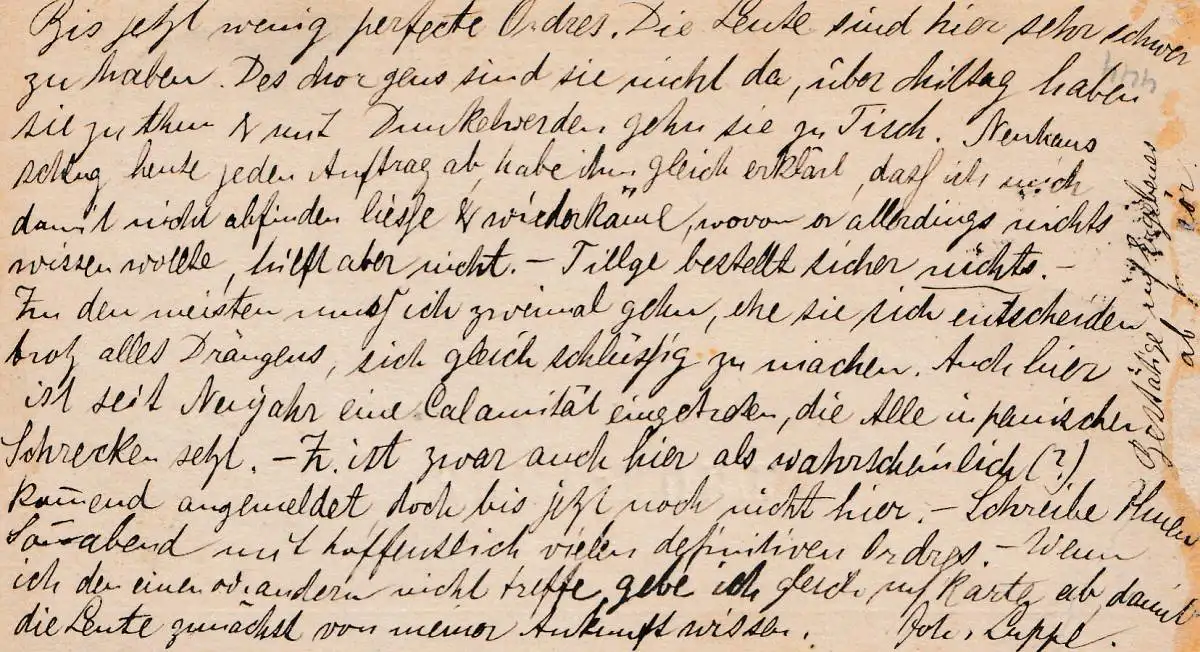 Bis jetzt wenig perfecte Ordres. Die Leute sind hier sehr schwer
zu haben. Des Morgens sind sie nicht da, über Mittag haben
sie zu thun & mit Dunkelwerden gehn sie zu Tisch. Neuhaus
schlug heute jeden Auftrag ab, habe ihm gleich erklärt, daß ich mich
damit nicht abfinden liesse & wiederkäme, wovon er allerdings nichts
wissen wollte, hilft aber nicht. – Tillge bestellt sicher nichts. –
Zu den meisten muß ich zweimal gehn, ehe sie sich entscheiden
trotz alles Drängens, sich gleich schlüssig zu machen. Auch hier
ist seit Neujahr eine Calamität eingetreten, die Alle in panischen
Schrecken setzt. – Z. ist zwar auch hier als wahrscheinlich (?)
kom̄end angemeldet, doch bis jetzt noch nicht hier. – Schreibe Ihnen
Son̄abend mit hoffentlich vielen definitiven Ordres. – Wenn
ich den einen od. andern nicht treffe, gebe ich gleich Karte ab, damit
die Leute zunächst von meiner Ankunft wissen. Joh. Luppe.
Bestätige
ab